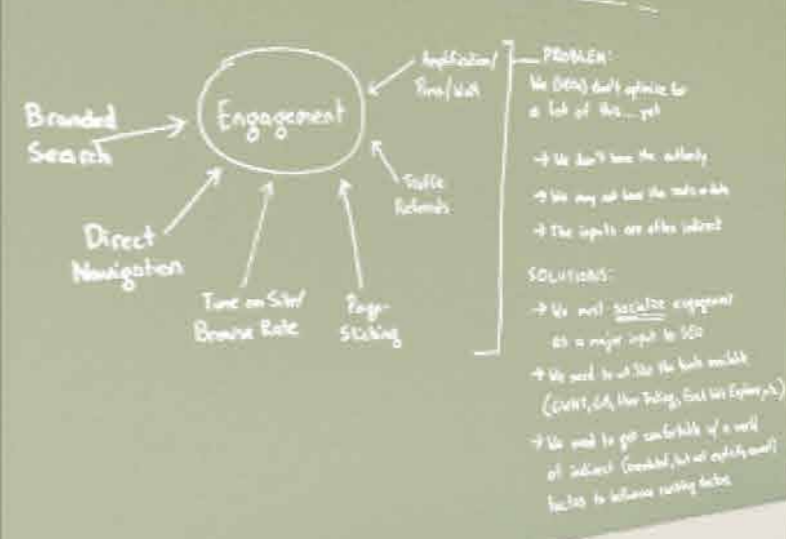 Engagement
Branded
Search
Direct
Navigation
Time on Site/
Browse Rate
Page-
Sticking
Amplification/
Traffic
Referrals
PROBLEM:
We (SEOs) don't optimize for
a lot of this... yet
→ We don't have the authority
→ We may not have the tools or data
→ The inputs are often indirect
SOLUTIONS:
→ We must socialize engagement
as a major input to SEO
→ We need to utilize the tools available
(GWMT, GA, User Testing,
→ We need to get comfortable w/ a world
of indirect (correlated, but not explicitly
factors to influence ranking factors